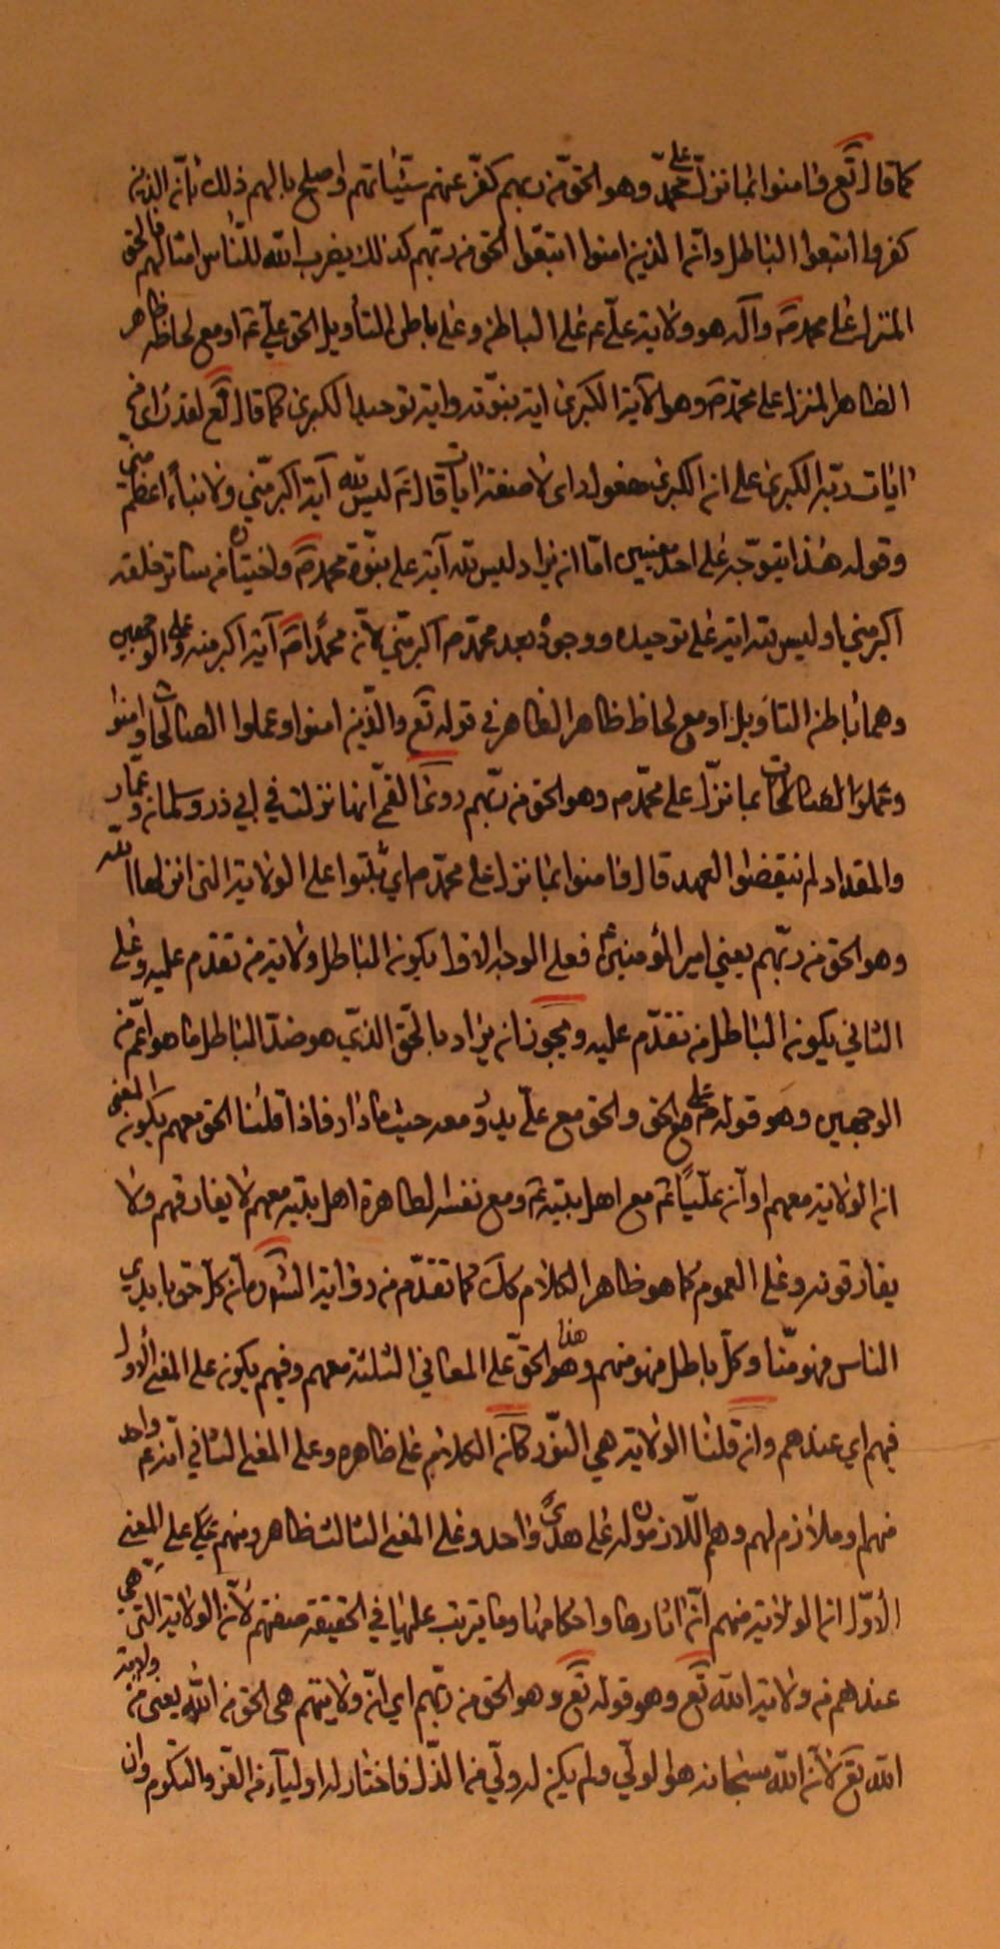 كما قال تع فامنوا بما نزل على محمد وهو الحق من ربهم كفر عنهم سيئاتهم واصلح بالهم ذلك بان الذين
كفروا اتبعوا الباطل وان الذين امنوا اتبعوا الحق من ربهم كذلك يضرب الله للناس امثالهم فالحق
المنزل على محمد ص وآله هو ولاية علي ع على الباطن وعلى باطن التأويل الحق علي ع او مع لحاظ ظاهر
الظاهر المنزل على محمد ص وهو الآية الكبرى اية نبوته واية توحيده الكبرى كما قال تع لقد راى من
ايات ربه الكبرى على ان الكبرى مفعول راى لا صفة ايات قال ع ليس لله آية اكبر مني ولا نبأ اعظم مني
وقوله هذا يتوجه على احد معنيين اما ان يراد ليس لله آية على نبوة محمد ص من سائر خلقه
اكبر مني او ليس لله اية على توحيده ووجوده بعد محمد ص اكبر مني لان محمدا ص آية اكبر منه وعلى الوجهين
وهما باطن التاويل او مع لحاظ ظاهر الظاهر في قوله تع والذين امنوا وعملوا الصالحات وامنوا
وعملوا الصالحات بما نزل على محمد ص وهو الحق من ربهم روى القمي انها نزلت في ابي ذر وسلمان وعمار
والمقداد لم ينقضوا العهد قال فامنوا بما نزل على محمد ص اي ثبتوا على الولاية التي انزلها الله
وهو الحق من ربهم يعني امير المؤمنين ع فعلى الوجه الاول يكون الباطل ولاية من تقدم عليه وعلى
الثاني يكون الباطل من تقدم عليه ويجوز ان يراد بالحق الذي هو ضد الباطل ما هو اعم من
الوجهين وهو قوله ص علي مع الحق والحق مع علي يدور معه حيث ما دار فاذا قلنا الحق معهم يكون المعنى
ان الولاية معهم او ان عليا ع مع اهل بيته ع ومع نفسه الطاهرة اهل بيته معهم لا يفارقهم ولا
يفارقونه وعلى العموم كما هو ظاهر الكلام كل كما تقدم من رواية بان كل حق بايدي
الناس فهو منا وكل باطل فهو منهم وهذا هو الحق على المعاني الثلثة معهم وفيهم يكون على المعنى الاول
فيهم اي عندهم وان قلنا الولاية هي النور كان الكلام على ظاهره وعلى المعنى الثاني انه ع واحد
منهم او ملازم لهم وهم اللازمون له على هدى واحد وعلى المعنى الثالث ظاهر ومنهم ع على المعنى
الاول ان الولاية منهم ان اثارها واحكامها وما يترتب عليها في الحقيقة صفتهم لان الولاية التي هي
عندهم من ولاية الله تع وهو قوله تع وهو الحق من ربهم اي ان ولايتهم هي الحق من الله يعنى من ولاية
الله تع لان الله سبحانه هو الولي ولم يكن له ولي من الذل فاختار له اولياء من العز والتكرم وان